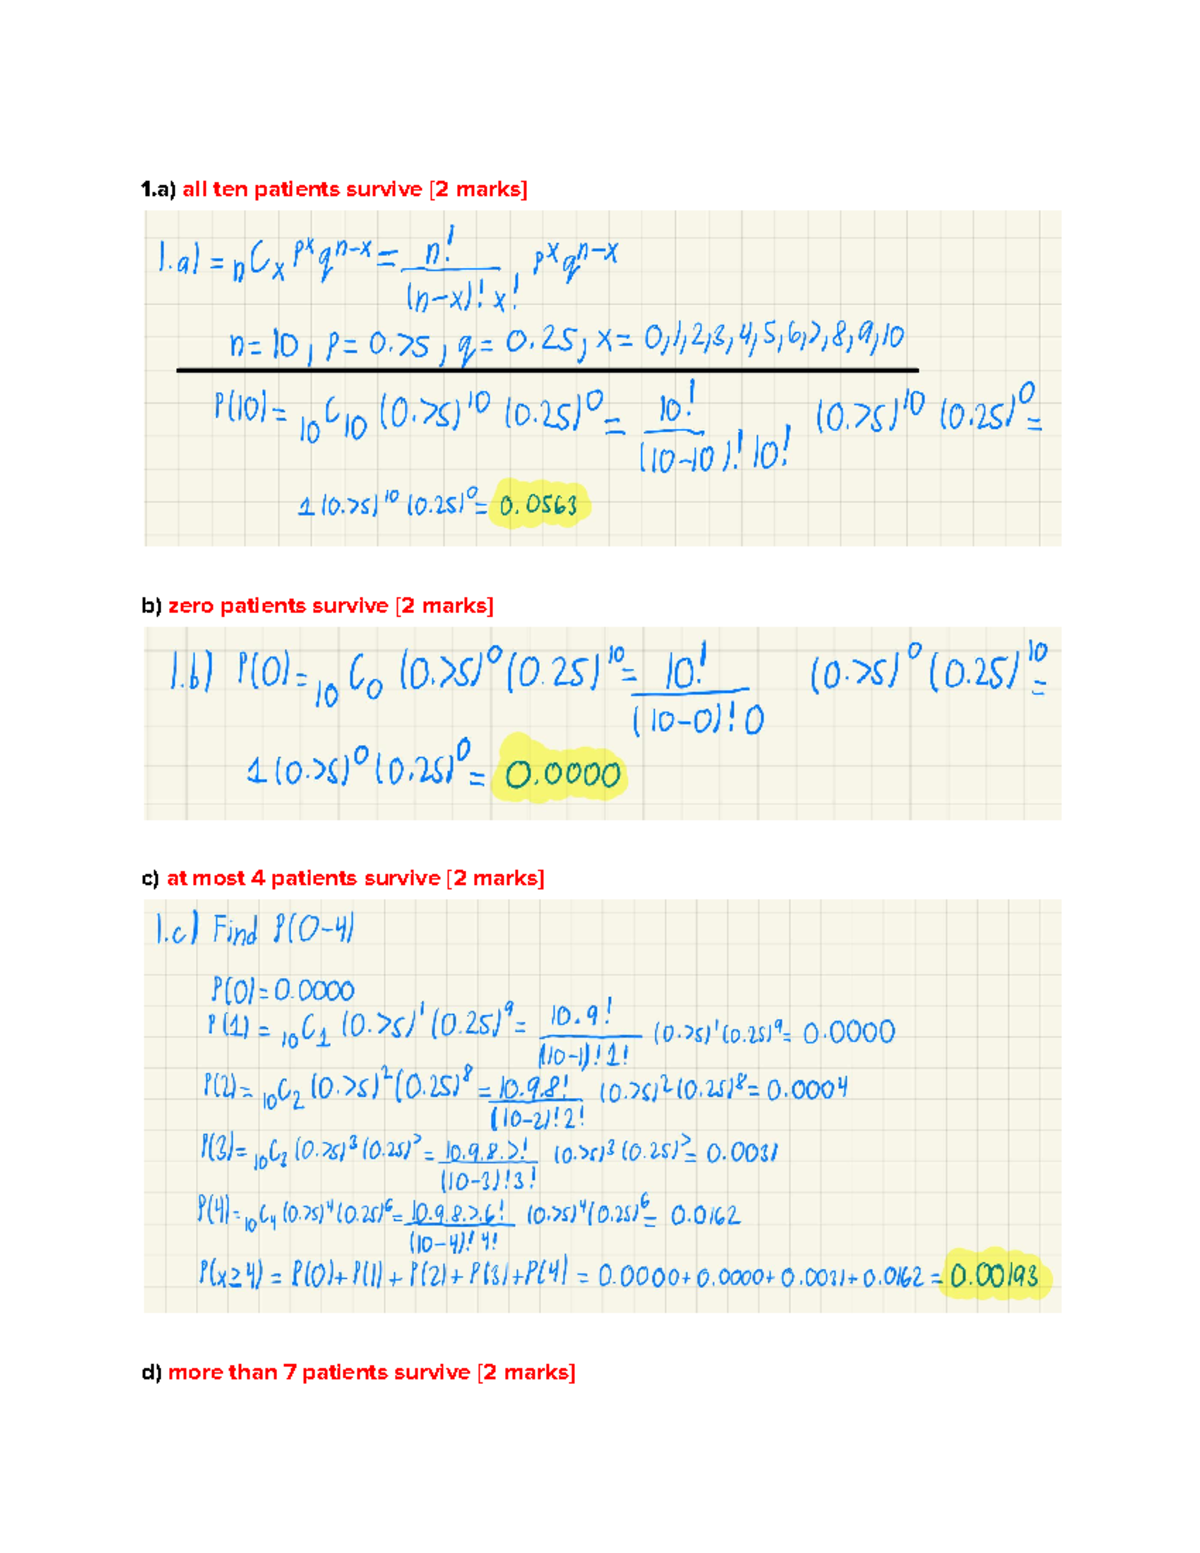 1.a) all ten patients survive [2 marks]
1.a) = nCx p^x q^n-x = n! / (n-x)! x! . p^x q^n-x
n = 10, p = 0.75, q = 0.25, x = 0,1,2,3,4,5,6,7,8,9,10
P(10) = 10C10 (0.75)^10 (0.25)^0 = 10! / (10-10)! 10! (0.75)^10 (0.25)^0 =
1 (0.75)^10 (0.25)^0 = 0.0563
b) zero patients survive [2 marks]
1.b) P(0) = 10C0 (0.75)^0 (0.25)^10 = 10! / (10-0)! 0 (0.75)^0 (0.25)^10 =
1 (0.75)^0 (0.25)^0 = 0.0000
c) at most 4 patients survive [2 marks]
1.c) Find P(0-4)
P(0) = 0.0000
P(1) = 10C1 (0.75)^1 (0.25)^9 = 10.9! / (10-1)! 1! (0.75)^1 (0.25)^9 = 0.0000
P(2) = 10C2 (0.75)^2 (0.25)^8 = 10.9.8! / (10-2)! 2! (0.75)^2 (0.25)^8 = 0.0004
P(3) = 10C3 (0.75)^3 (0.25)^7 = 10.9.8.7! / (10-3)! 3! (0.75)^3 (0.25)^7 = 0.0031
P(4) = 10C4 (0.75)^4 (0.25)^6 = 10.9.8.7.6! / (10-4)! 4! (0.75)^4 (0.25)^6 = 0.0162
P(x≥4) = P(0) + P(1) + P(2) + P(3) + P(4) = 0.0000 + 0.0000 + 0.0031 + 0.0162 = 0.00193
d) more than 7 patients survive [2 marks]